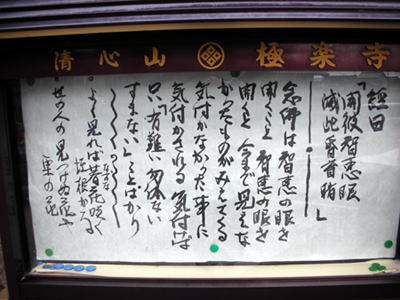 清心山 極楽寺
経曰
「開彼智恵眼
滅此昏盲暗」
念仏は智恵の眼を
開くこと 智恵の眼を
開くと 今まで見えな
かったものがみえてくる
気付かなかった事に
気付かされる 気付けば
只「有難い 勿体ない
すまない」ことばかり
・よく見れば薺花咲く
なずな
垣根かな
・世の人の見つけぬ花や
栗の花